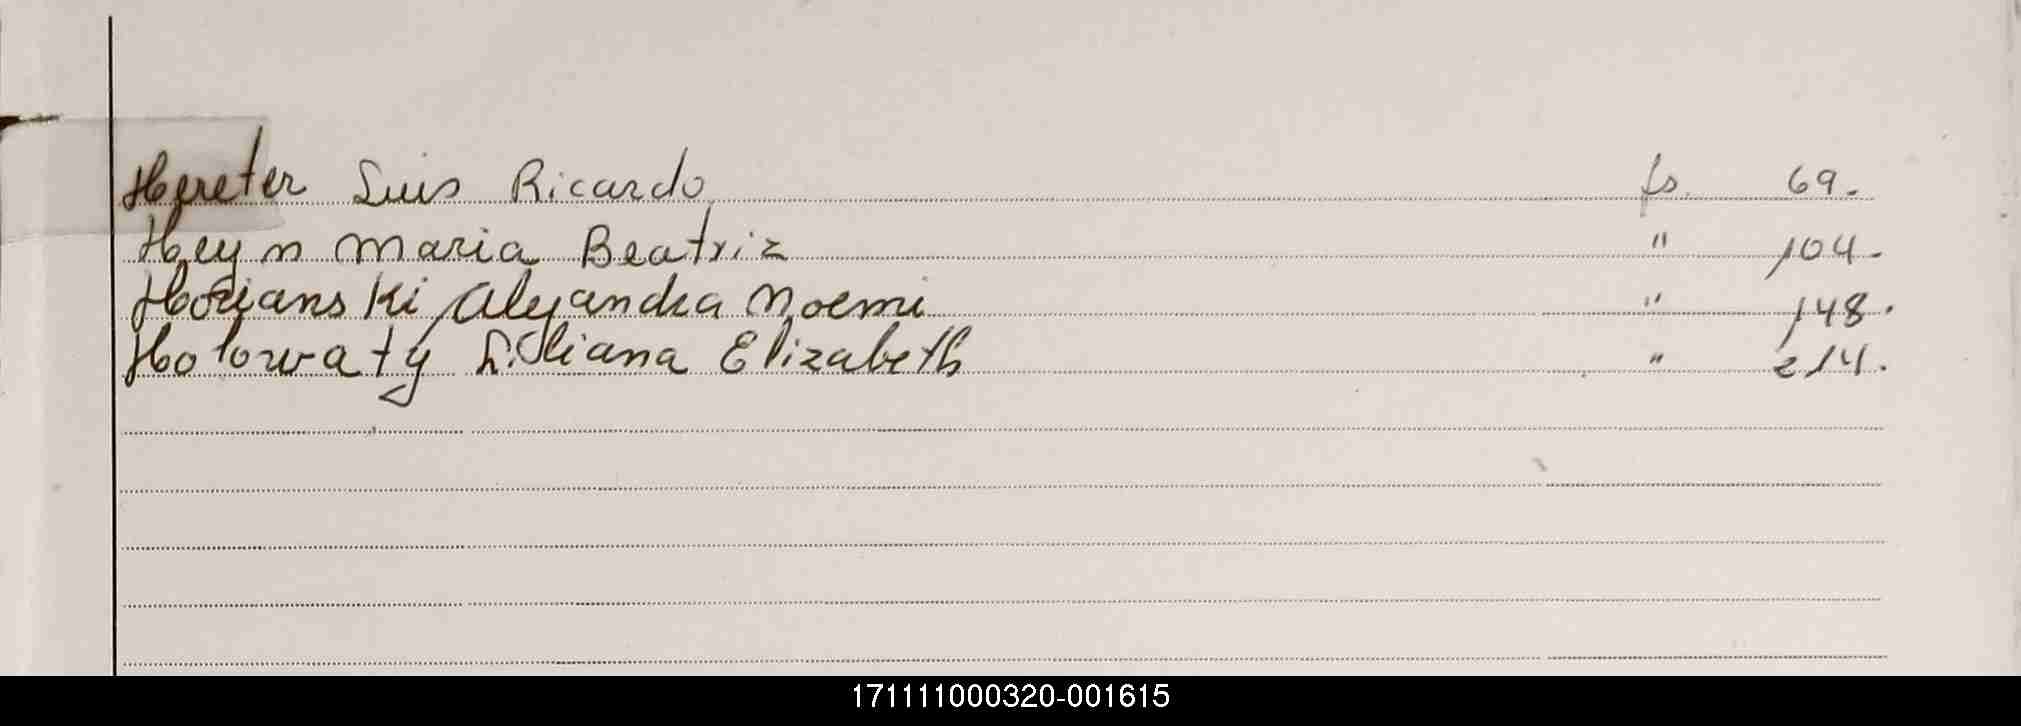 Hereter Luis Ricardo fs. 69.
Heyn Maria Beatriz " 104.
Horjanski Alejandra Noemi " 148.
Holowaty Liliana Elizabeth " 214.
171111000320-001615